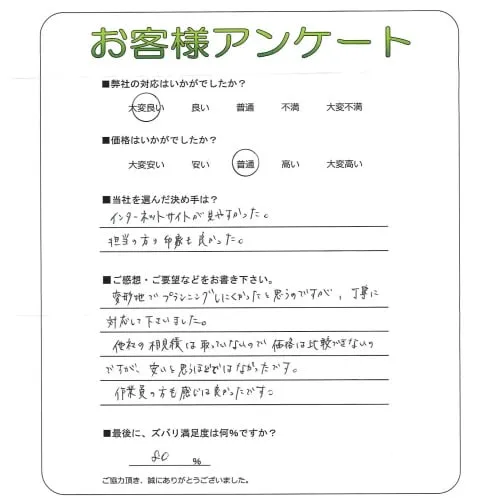 お客様アンケート
■弊社の対応はいかがでしたか?
大変良い 良い 普通 不満 大変不満
■価格はいかがでしたか?
大変安い 安い 普通 高い 大変高い
■当社を選んだ決め手は?
インターネットサイトが見やすかった。
担当の方の印象も良かった。
■ご感想・ご要望などをお書き下さい。
変形地でプランニングしにくかったと思うのですが、丁寧に
対応して下さいました。
他社の相見積は取っていないので価格は比較できないの
ですが、安いと思うほどではなかったです。
作業員の方も感じは良かったです。
■最後に、ズバリ満足度は何%ですか?
80 %
ご協力頂き、誠にありがとうございました。